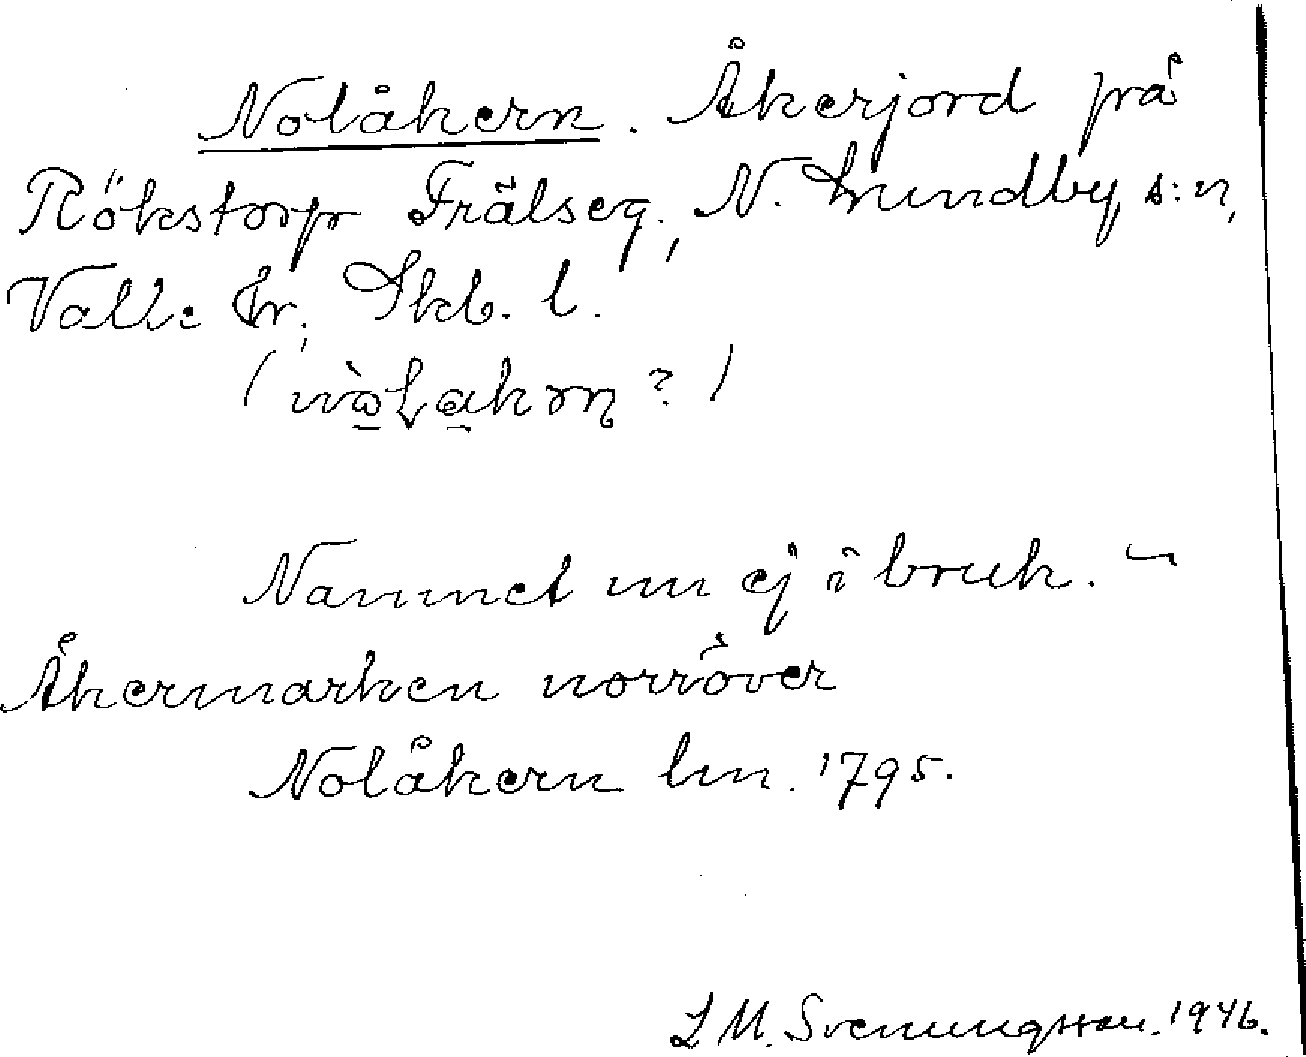 Nolåkern. Åkerjord på
Rökstorp Frälseg., N. Lundby s:n,
Valle hr, Skb. l.
Namnet nu ej i bruk. –
Åkermarken norröver
Nolåkern lm. 1795.
L M. Svenungsson. 1946.